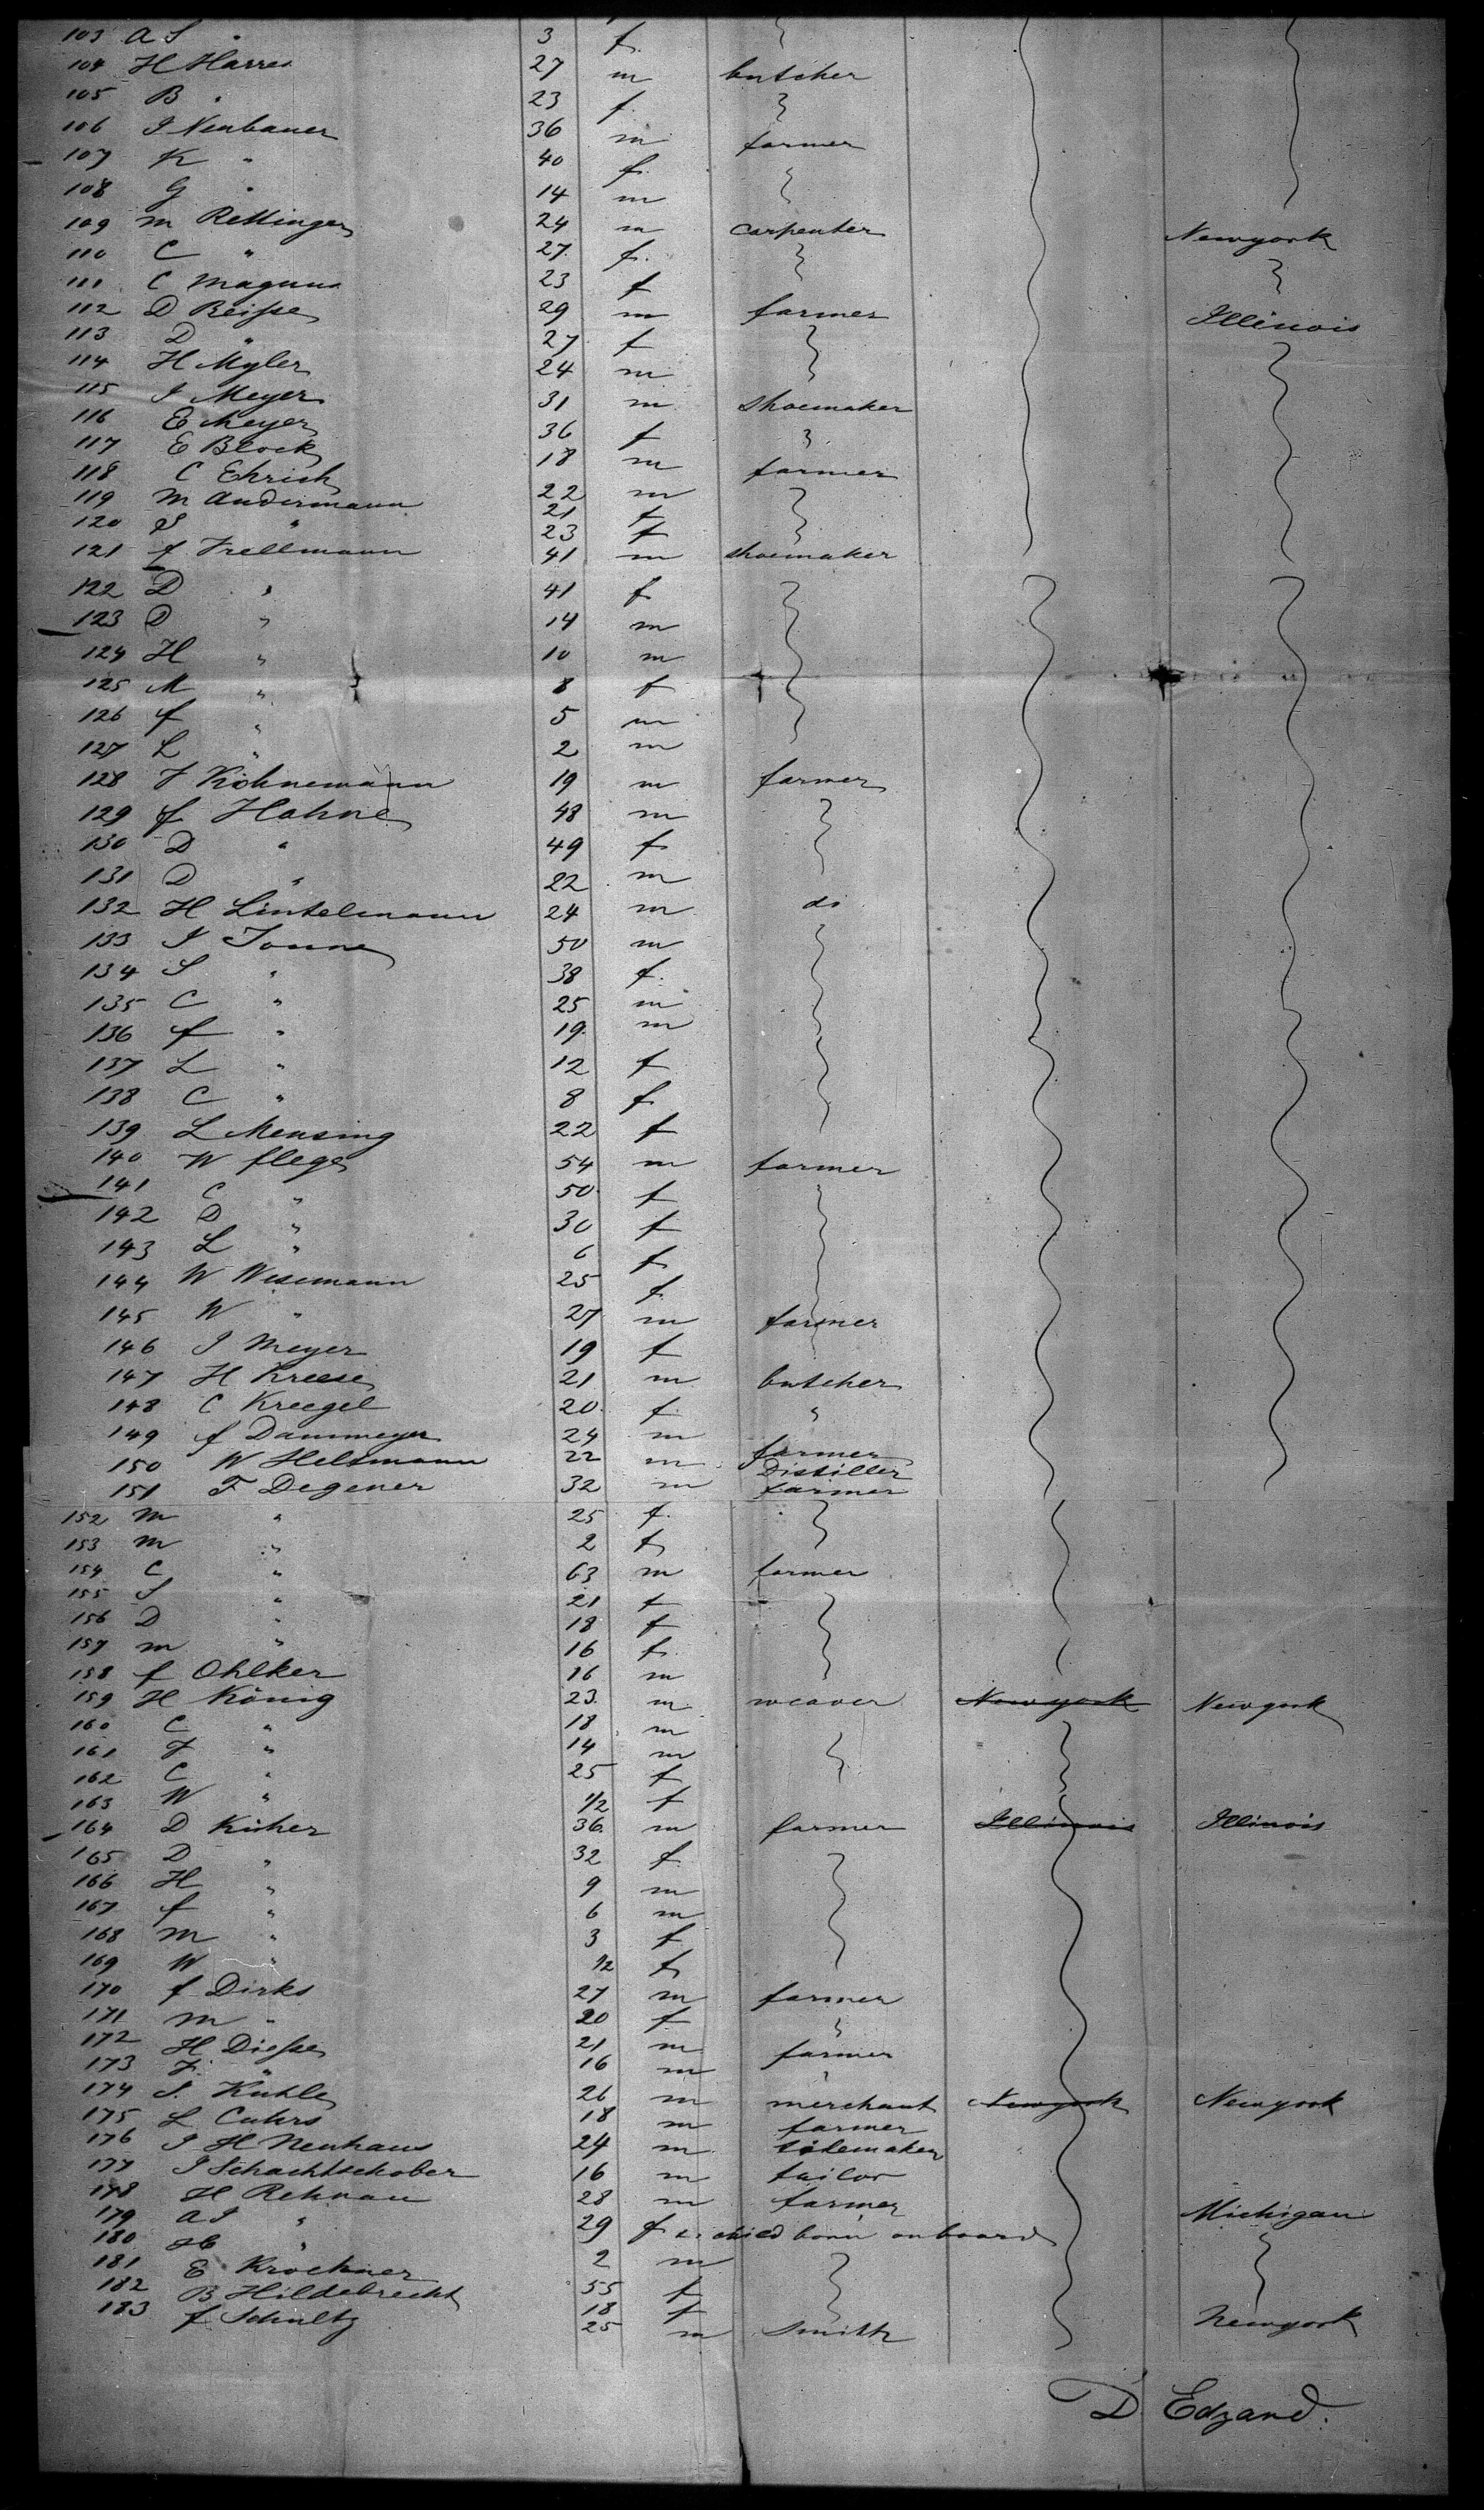 103 A S " 3 f.
104 H Harres 27 m butcher
105 B " 23 f.
106 J Neubauer 36 m farmer
107 K " 40 f.
108 G " 14 m
109 M Rettinger 24 m carpenter Newyork
110 C " 27. f.
111 C Magnus 23 f
112 D Beisse 29 m farmer Illinois
113 D " 27 f
114 H Myler 24 m
115 J Meyer 31 m shoemaker
116 E Meyer 36 f
117 E Block 18 m farmer
118 C Ehrich 22 m
119 M Andermann 21 f
120 S " 23 f
121 f Trellmann 41 m shoemaker
122 D " 41 f
123 D " 14 m
124 H " 10 m
125 M " 8 f
126 f " 5 m
127 L " 2 m
128 F Köhnemann 19 m farmer
129 f Hohne 48 m
130 D " 49 f
131 D " 22 m
132 H Lintelmann 24 m do
133 J Tonne 50 m
134 S " 38 f.
135 C " 25 m
136 f " 19. m
137 L " 12 f
138 C " 8 f
139 L Mensing 22 f
140 W flege 54 m farmer
141 C " 50 f
142 D " 30 f
143 L " 6 f
144 W Wesemann 25 f
145 W " 27 m farmer
146 J Meyer 19 f
147 H Kreese 21 m butcher
148 C Kreegel 20 f "
149 f Dammeyer 24 m farmer
150 W Heltmann 22 m Distiller
151 F Degener 32 m farmer
152 M " 25 f.
153 M " 2 f
154 C " 63 m farmer
155 S " 21 f
156 D " 18 f
157 M " 16 f.
158 f Ohlker 16 m
159 H König 23. m weaver Newyork Newyork
160 C " 18 m
161 F " 14 m
162 C " 25 f
163 W " 1/2 f
164 D Küher 36 m farmer Illinois Illinois
165 D " 32 f.
166 H " 9 m
167 f " 6 m
168 M " 3 f
169 W " 1/2 f
170 f Dirks 27 m farmer
171 M " 20 f
172 H Diesse 21 m farmer
173 F. " 16 m
174 S. Kuhle 26 m merchant Newyork Newyork
175 L Cuhrs 18 m farmer
176 J H Neuhaus 24 m
177 J Schachtschober 16 m tailor
178 H Rehnau 28 m farmer Michigan
179 A J " 29 f child born on board
180 H " 2 m
181 E Kroehner 55 f
182 B Hildebrecht 18 f
183 f Schultz 25 m Smith Newyork
D. Edzard.